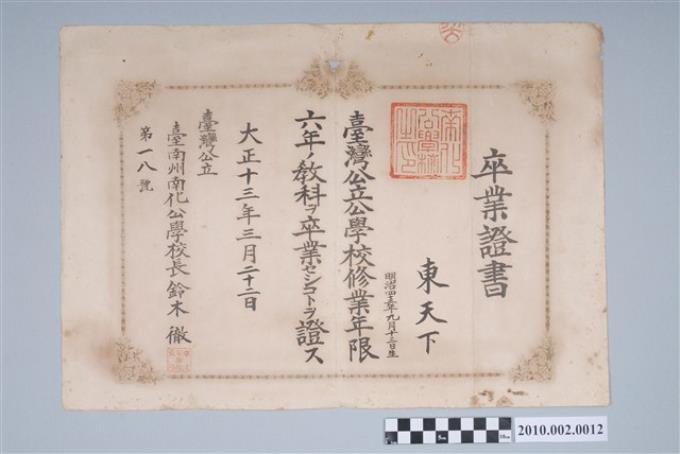 卒業證書
東天下
明治四五年九月十三日生
臺灣公立公學校修業年限
六年ノ教科ヲ卒業セシコトヲ證ス
大正十三年三月二十二日
臺灣公立
臺南州南化公學校長 鈴木 徹
第一八號
南化公學校之印
5cm
10cm
2010.002.0012